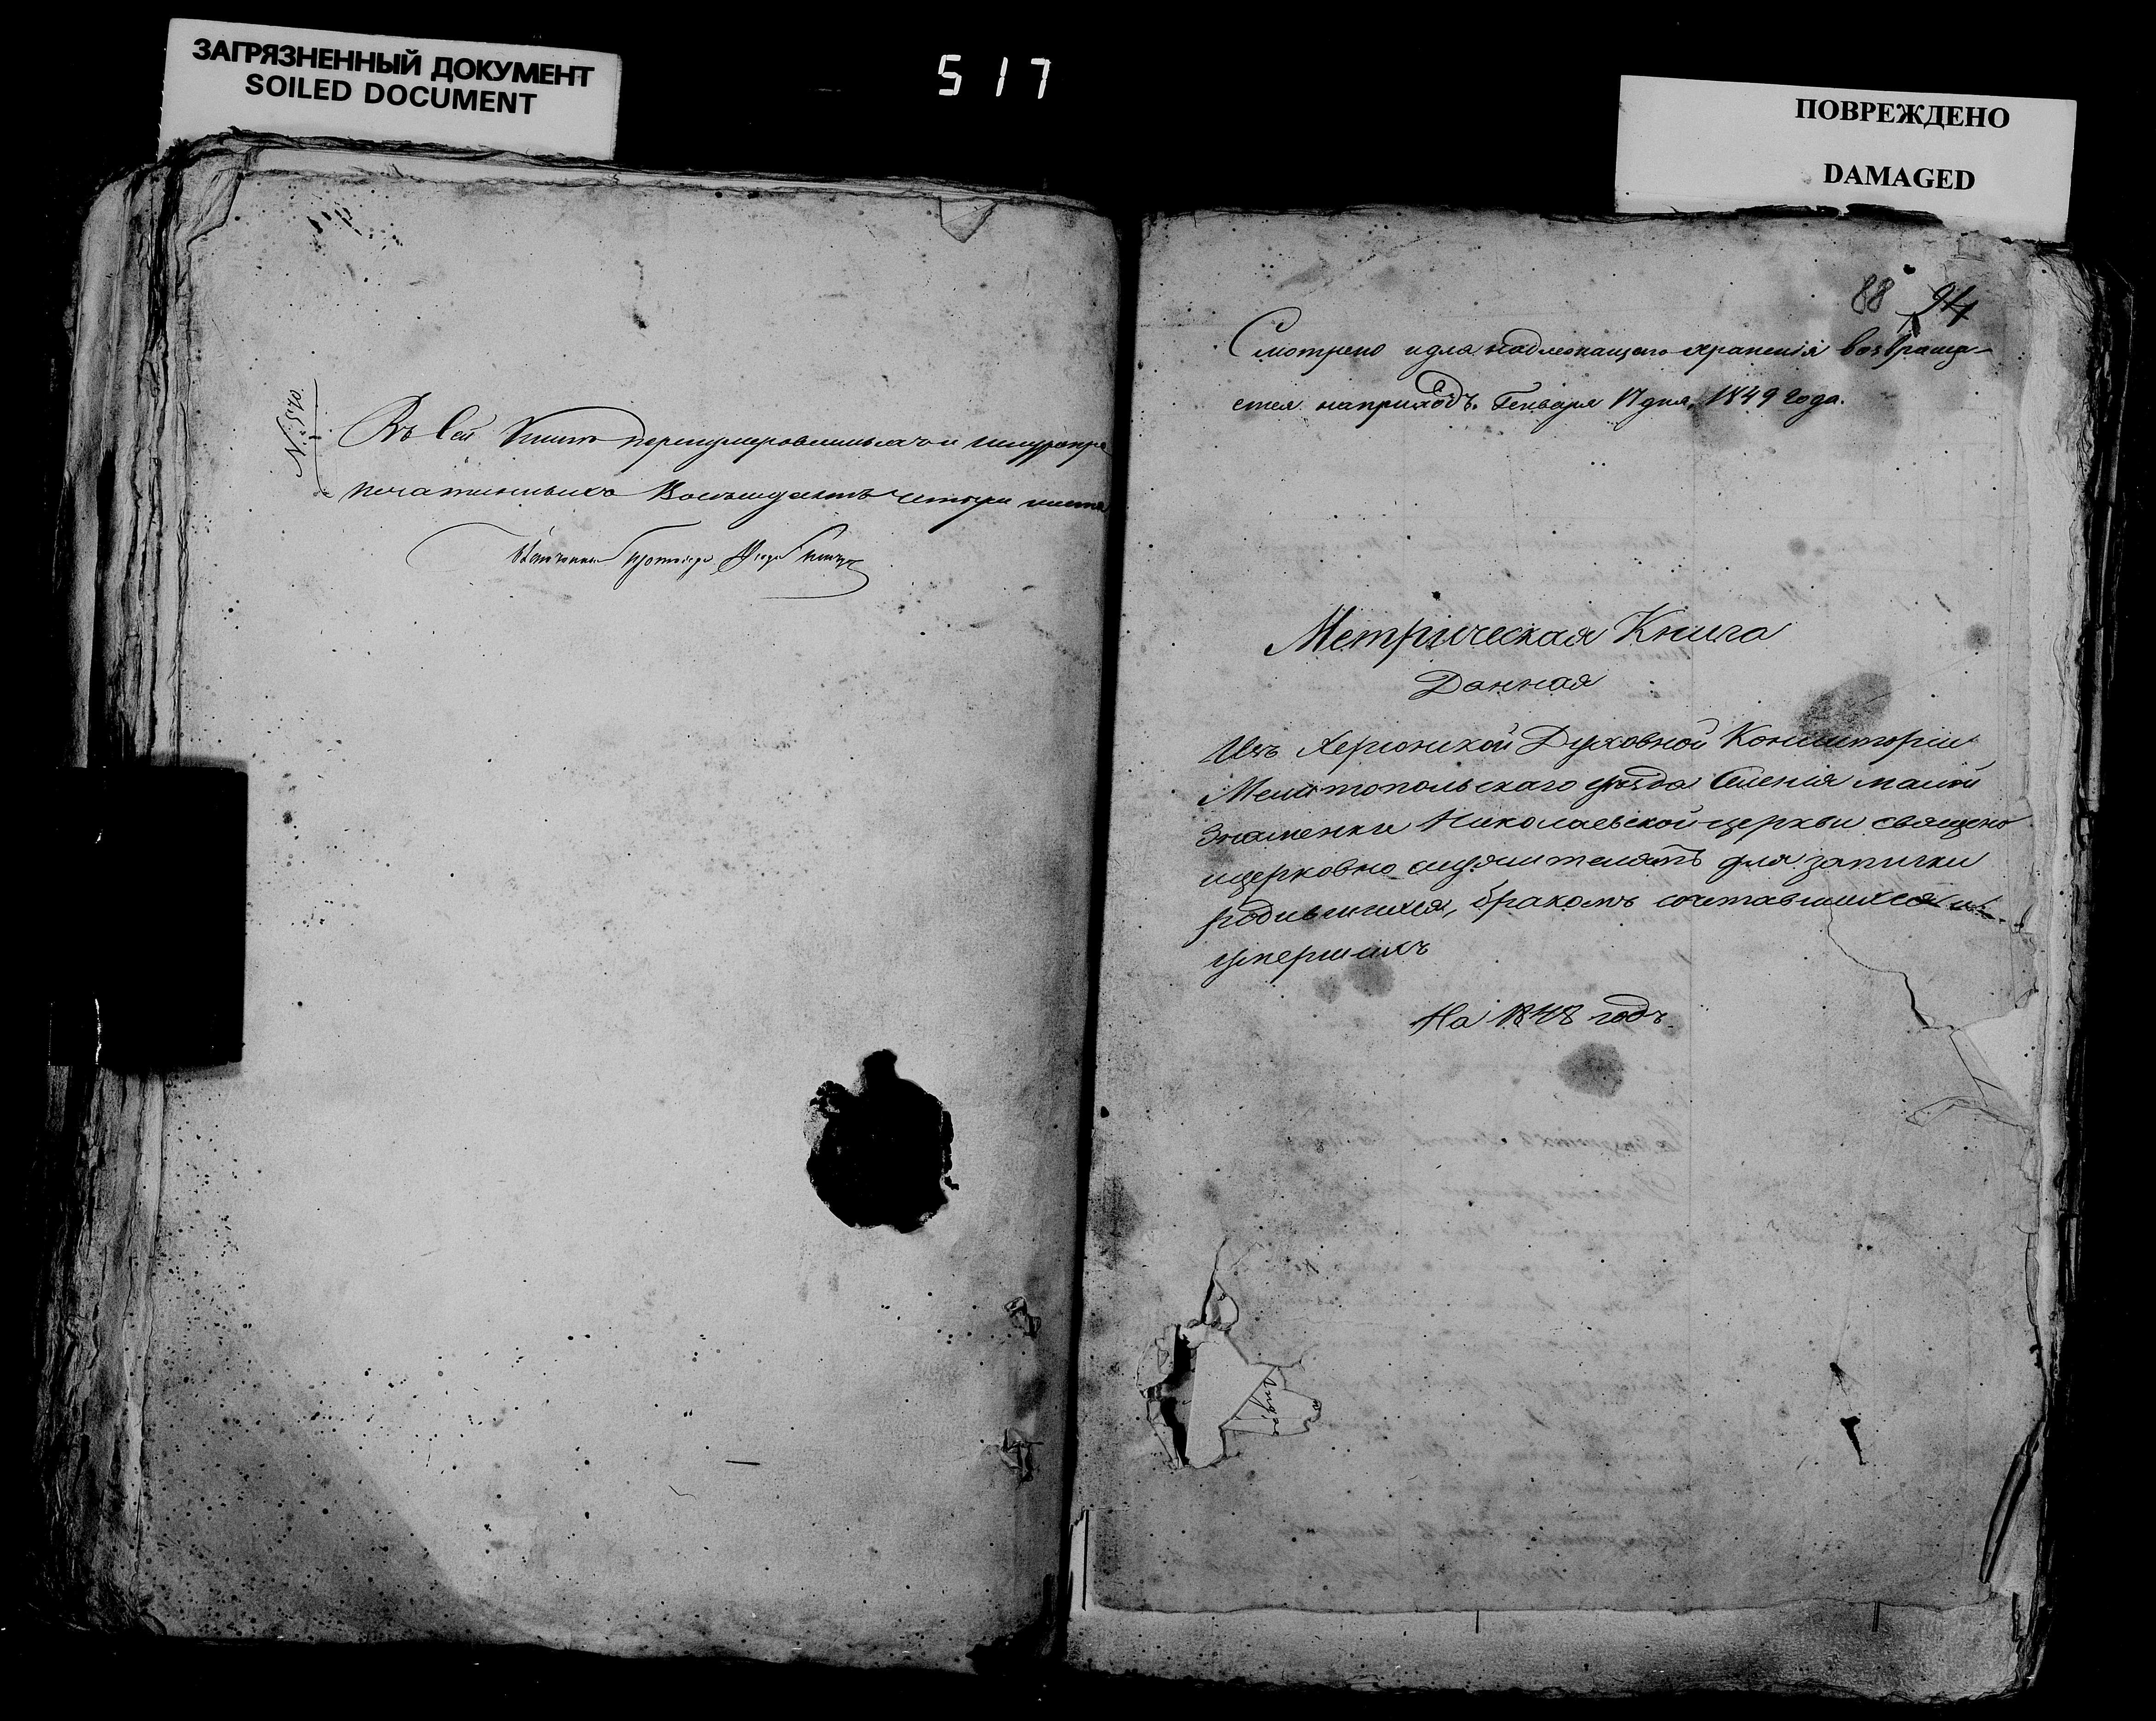 ЗАГРЯЗНЕННЫЙ ДОКУМЕНТ
SOILED DOCUMENT
517
ПОВРЕЖДЕНО
DAMAGED
№ 570.
Въ сей книгѣ перенумерованныхъ и шнурапре
печатанныхъ восемдесятъ четыри листа
88 94
Смотрено и для надлежащаго храненія возвраща-
ется на приходъ. Генваря 17 дня, 1849 года.
Метрическая Книга
Данная
Изъ Херсонской Духовной Консисторіи
Мелитопольскаго уѣзда Селенія малой
Знаменки Николаевской церкви священо
ицерковно служителямъ для записки
родившихся, бракомъ сочтавшихся и
умершихъ
На 1848 годъ